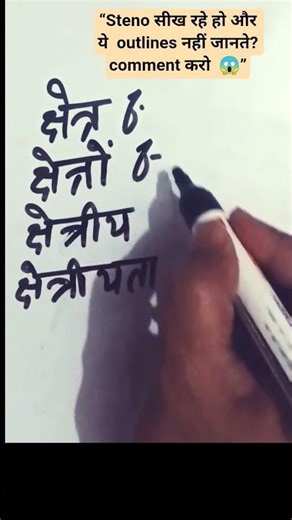 “Steno सीख रहे हो और
ये outlines नहीं जानते?
comment करो 😱”
क्षेत्र
क्षेत्रों
क्षेत्रीय
क्षेत्रीयता